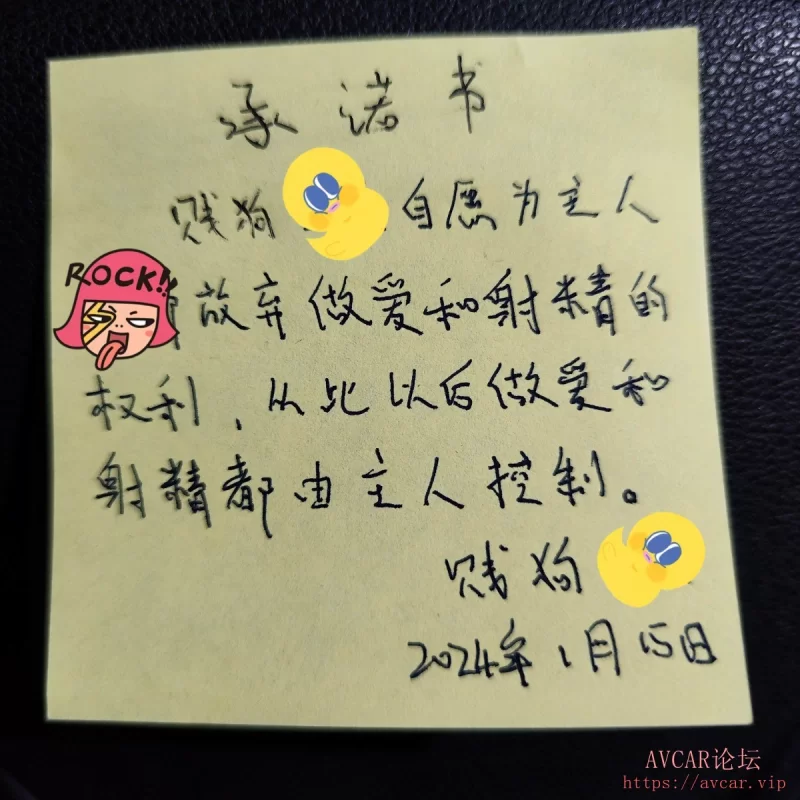 承诺书
贱狗 自愿为主人
ROCK!!
放弃做爱和射精的
权利，从此以后做爱和
射精都由主人控制。
贱狗
2024年1月15日
AVCAR论坛
https://avcar.vip